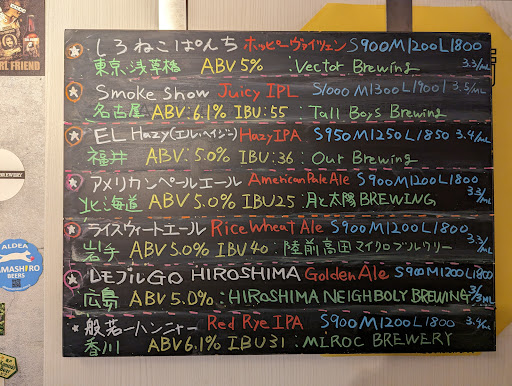 RL FRIEND
BREWERY
ALDEA
YAMASHIRO
BEERS
しろねこぱんち ホッピーヴァイツェン S900M1200L1800
東京・浅草橋 ABV5% :Vector Brewing 3.3/mL
Smoke Show Juicy IPL S1000M1300L1900 3.5/mL
名古屋 ABV:6.1% IBU:55 :Tall Boys Brewing
EL Hazy(エル・ヘイジー) Hazy IPA S950M1250L1850 3.4/mL
福井 ABV:5.0% IBU:36 :Our Brewing
アメリカンペールエール American Pale Ale S900M1200L1800
北海道 ABV5.0% IBU25 :月と太陽BREWING 3.3/mL
ライスウィートエール Rice Wheat Ale S900M1200L1800
岩手 ABV5.0% IBU40 :陸前高田マイクロブルワリー 3.3/mL
レモブルGO HIROSHIMA Golden Ale S900M1200L1800
広島 ABV5.0% :HIROSHIMA NEIGHBOLY BREWING 3.3/mL
般若ーハンニャー Red Rye IPA S900M1200L1800 3.4/mL
香川 ABV6.1% IBU31 :MIROC BREWERY